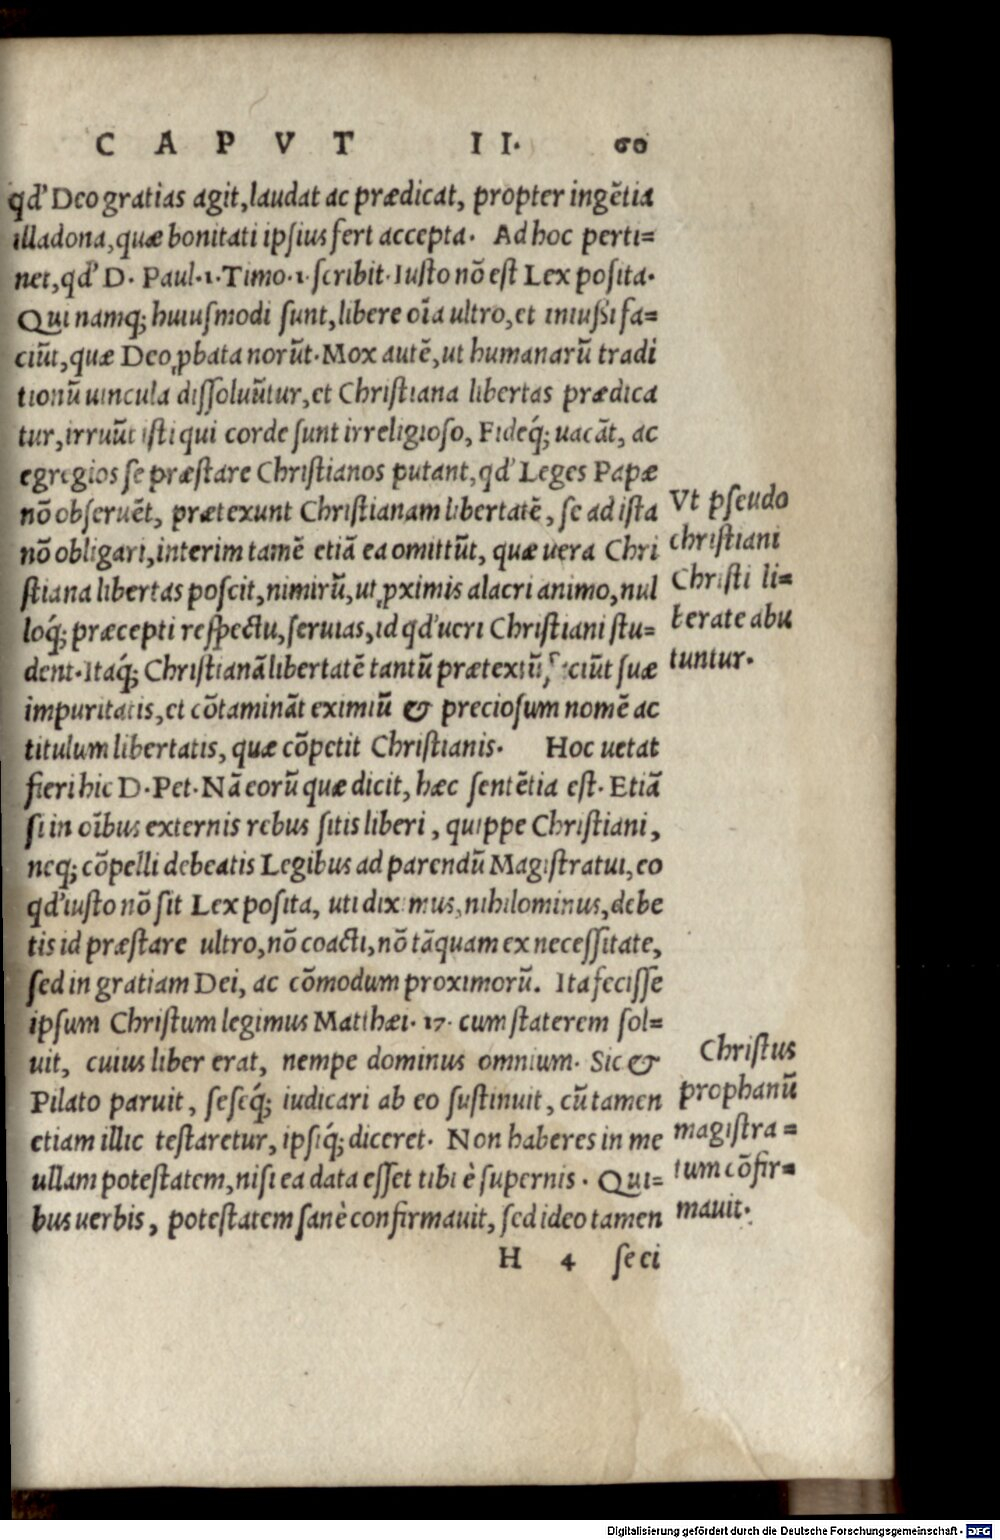 CAPVT II. 60
qd' Deo gratias agit, laudat ac prædicat, propter ingẽtia
illa dona, quæ bonitati ipſius fert accepta. Ad hoc perti=
net, qd' D. Paul. 1. Timo. 1. ſcribit. Iuſto nõ eſt Lex poſita.
Qui namq; huiuſmodi ſunt, libere oĩa ultro, et iniuſſi fa=
ciũt, quæ Deo ꝓbata norũt. Mox autẽ, ut humanarũ tradi
tionũ uincula diſſoluũtur, et Chriſtiana libertas prædica
tur, irruũt iſti qui corde ſunt irreligioſo, Fideq́; uacãt, ac
egregios ſe præſtare Chriſtianos putant, qd' Leges Papæ
nõ obſeruẽt, prætexunt Chriſtianam libertatẽ, ſe ad iſta
nõ obligari, interim tamẽ etiã ea omittũt, quæ uera Chri
ſtiana libertas poſcit, nimirũ, ut ꝓximis alacri animo, nul
loq́; præcepti reſpectu, ſeruias, id qd' ueri Chriſtiani ſtu=
dent. Itaq́; Chriſtianã libertatẽ tantũ prætextũ, ciũt ſuæ
impuritatis, et cõtaminãt eximiũ & precioſum nomẽ ac
titulum libertatis, quæ cõpetit Chriſtianis. Hoc uetat
fieri hic D. Pet. Nã eorũ quæ dicit, hæc ſentẽtia eſt. Etiã
ſi in oĩbus externis rebus ſitis liberi, quippe Chriſtiani,
neq; cõpelli debeatis Legibus ad parendũ Magiſtratui, eo
qd' iuſto nõ ſit Lex poſita, uti diximus, nihilominus, debe
tis id præſtare ultro, nõ coacti, nõ tãquam ex neceſſitate,
ſed in gratiam Dei, ac cõmodum proximorũ. Ita feciſſe
ipſum Chriſtum legimus Matthæi. 17. cum ſtaterem ſol=
uit, cuius liber erat, nempe dominus omnium. Sic &
Pilato paruit, ſeſeq́; iudicari ab eo ſuſtinuit, cũ tamen
etiam illic teſtaretur, ipſiq́; diceret. Non haberes in me
ullam poteſtatem, niſi ea data eſſet tibi è ſupernis. Qui=
bus uerbis, poteſtatem ſanè confirmauit, ſed ideo tamen
H 4 ſeci
Vt pſeudo
chriſtiani
Chriſti li=
berate abu
tuntur.
Chriſtus
prophanũ
magiſtra=
tum cõfir=
mauit.
Digitalisierung gefördert durch die Deutsche Forschungsgemeinschaft - DFG